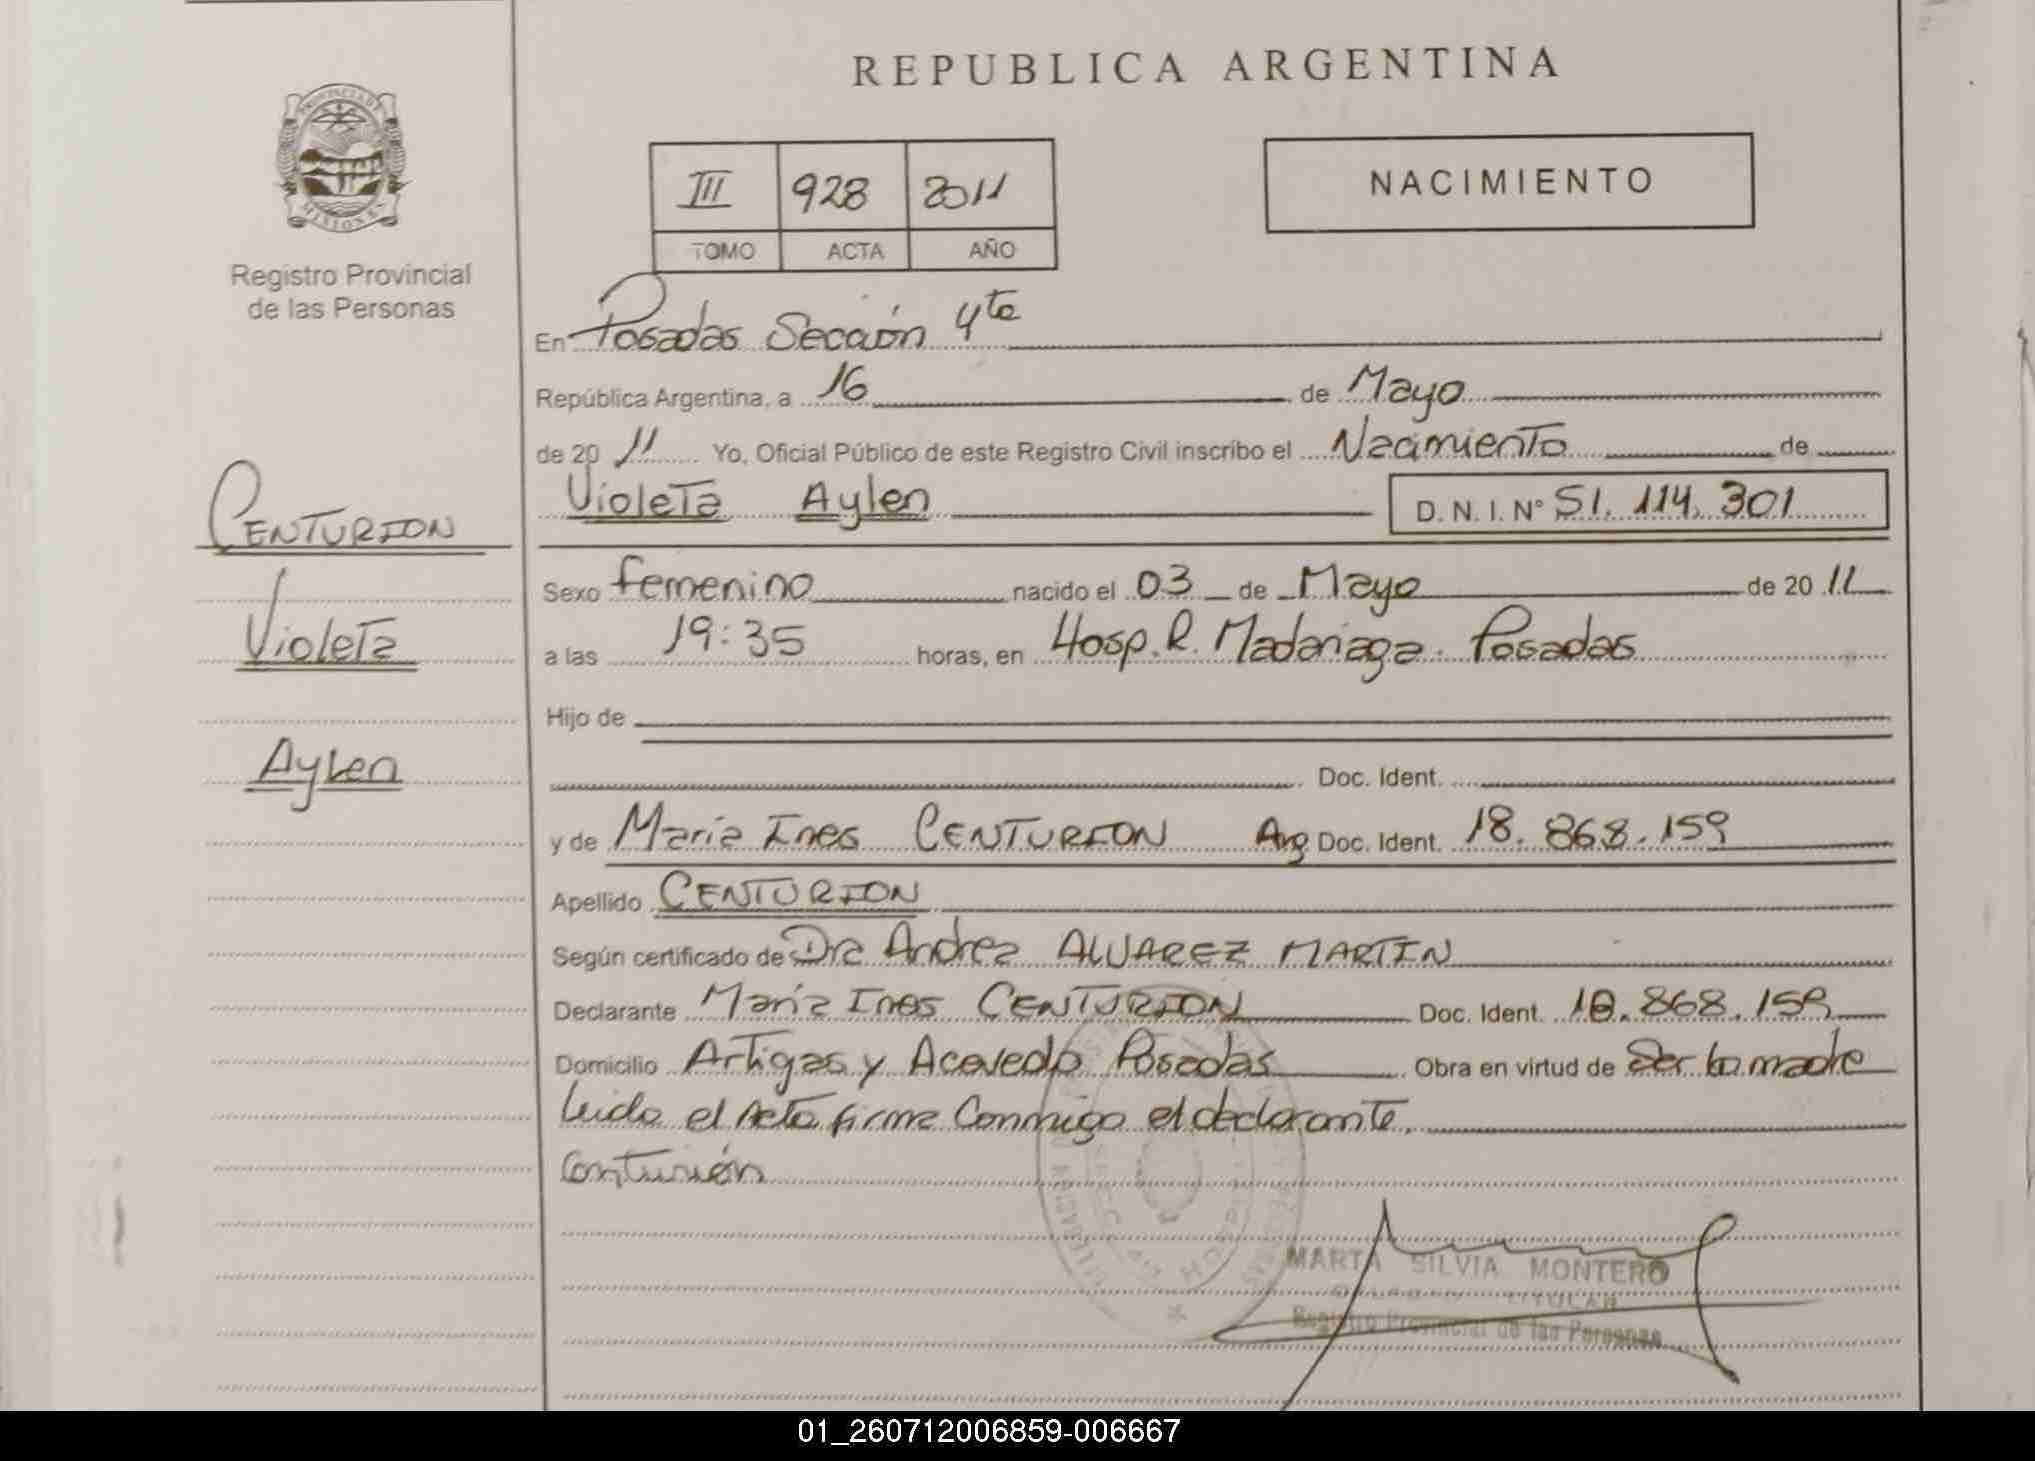 REPUBLICA ARGENTINA
PROVINCIA DE
MISIONES
Registro Provincial
de las Personas
III 928 2011
TOMO ACTA AÑO
NACIMIENTO
En Posadas Sección 4ta
República Argentina, a 16 de Mayo
de 20 11 Yo, Oficial Público de este Registro Civil inscribo el Nacimiento de
Violeta Aylen D.N.I.N° 51.114.301
CENTURION
Violeta
Aylen
Sexo femenino nacido el 03 de Mayo de 20 11
a las 19:35 horas, en Hosp. R. Madariaga. Posadas
Hijo de
Doc. Ident.
y de Maria Ines CENTURION Arg Doc. Ident. 18.868.159
Apellido CENTURION
Según certificado de Dra Andrea ALVAREZ MARTIN
Declarante Maria Ines CENTURION Doc. Ident. 18.868.159
Domicilio Artigas y Acevedo Posadas Obra en virtud de Ser la madre
Leida el Acta firma Conmigo el declarante.
Centurión
MARTA SILVIA MONTERO
TITULAR
Registro Provincial de las Personas
01_260712006859-006667